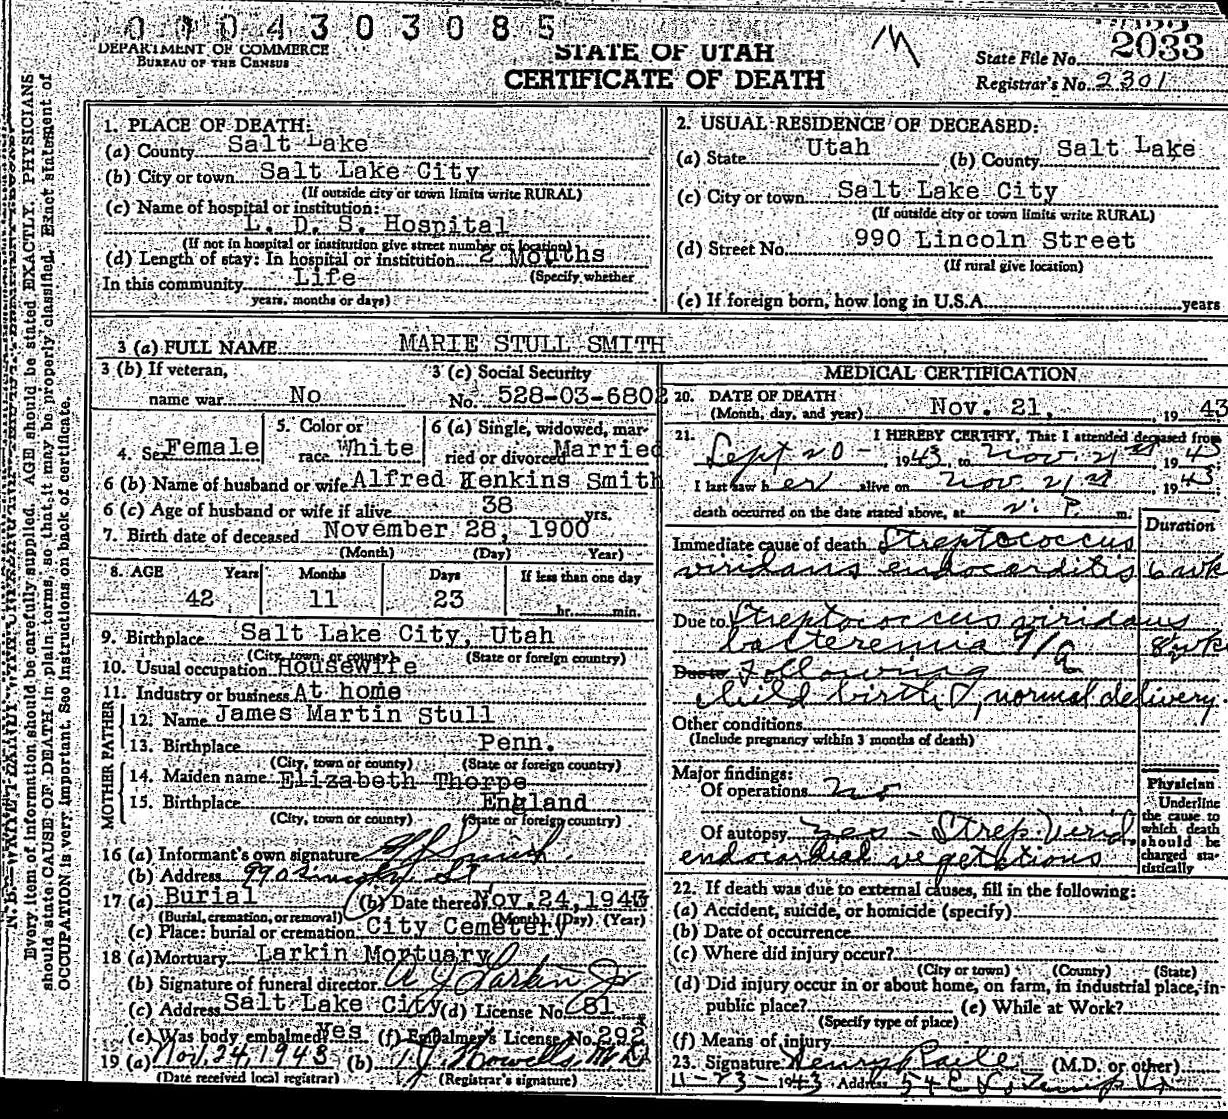 0 0 0 4 3 0 3 0 8 5
DEPARTMENT OF COMMERCE
BUREAU OF THE CENSUS
STATE OF UTAH
CERTIFICATE OF DEATH
State File No. 2033
Registrar's No. 2301
N. B.—WRITE PLAINLY
Every item of information should be carefully supplied. AGE should be stated EXACTLY. PHYSICIANS
should state CAUSE OF DEATH in plain terms, so that it may be properly classified. Exact statement of
OCCUPATION is very important. See instructions on back of certificate.
1. PLACE OF DEATH:
(a) County Salt Lake
(b) City or town Salt Lake City
(If outside city or town limits write RURAL)
(c) Name of hospital or institution:
L. D. S. Hospital
(If not in hospital or institution give street number or location)
(d) Length of stay: In hospital or institution 2 Months
(Specify whether
In this community Life
years, months or days)
2. USUAL RESIDENCE OF DECEASED:
(a) State Utah (b) County Salt Lake
(c) City or town Salt Lake City
(If outside city or town limits write RURAL)
(d) Street No. 990 Lincoln Street
(If rural give location)
(e) If foreign born, how long in U.S.A. years
3 (a) FULL NAME MARIE STULL SMITH
3 (b) If veteran,
name war No
3 (c) Social Security
No. 528-03-6802
4. Sex Female
5. Color or
race White
6 (a) Single, widowed, mar-
ried or divorced Married
6 (b) Name of husband or wife Alfred Henkins Smith
6 (c) Age of husband or wife if alive 38 yrs.
7. Birth date of deceased November 28, 1900
(Month) (Day) Year)
8. AGE Years Months Days If less than one day
42 11 23 hr. min.
9. Birthplace Salt Lake City, Utah
(City, town, or county) (State or foreign country)
10. Usual occupation Housewife
11. Industry or business At home
FATHER
12. Name James Martin Stull
13. Birthplace Penn.
(City, town or county) (State or foreign country)
MOTHER
14. Maiden name Elizabeth Thorpe
15. Birthplace England
(City, town or county) (State or foreign country)
16 (a) Informant's own signature Smith
(b) Address 990 Lincoln St.
17 (a) Burial (b) Date thereof Nov. 24, 1943
(Burial, cremation, or removal) (Month) (Day) (Year)
(c) Place: burial or cremation City Cemetery
18 (a) Mortuary Larkin Mortuary
(b) Signature of funeral director A J Larkin Jr
(c) Address Salt Lake City (d) License No. 81
(e) Was body embalmed Yes (f) Embalmer's License No. 292
19 (a) Nov. 24, 1943 (b) Howells M.D.
(Date received local registrar) (Registrar's signature)
MEDICAL CERTIFICATION
20. DATE OF DEATH
(Month, day, and year) Nov. 21, 1943
21. I HEREBY CERTIFY, That I attended deceased from
Sept 20 - 1943 to Nov. 21st, 1943
I last saw her alive on Nov. 21st, 1943
death occurred on the date stated above, at P. m.
Duration
Immediate cause of death Streptococcus
viridans endocarditis 6 wk
Due to Streptococcus viridans
bacteremia 8 wk
Due to Following
child birth, normal delivery.
Other conditions
(Include pregnancy within 3 months of death)
Major findings:
Of operations no
Of autopsy yes - Strep. Virid.
endocardial vegetations
Physician
Underline
the cause to
which death
should be
charged sta-
tistically
22. If death was due to external causes, fill in the following:
(a) Accident, suicide, or homicide (specify)
(b) Date of occurrence
(c) Where did injury occur?
(City or town) (County) (State)
(d) Did injury occur in or about home, on farm, in industrial place, in
public place? (e) While at Work?
(Specify type of place)
(f) Means of injury
23. Signature Henry Raile (M.D. or other)
11-23-1943 Address 54 E So. Temple St